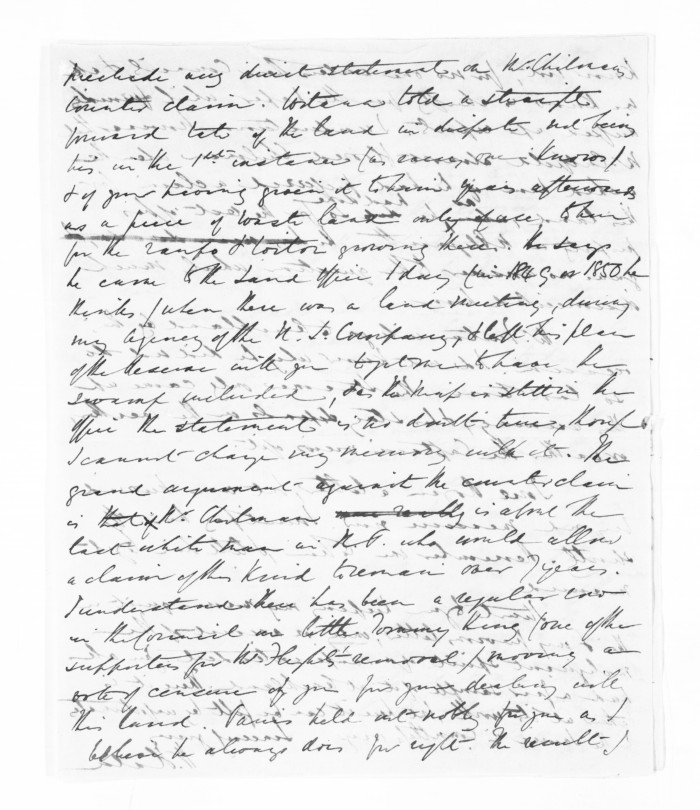 preclude any direct statement on Mr. Chilman's
counter claim. Witana told a straight
forward tale of the land in dispute not being
his in the 1st instance (as every one knows)
& of your having given it to him years afterwards
as a piece of waste land only of use to him
for the raupo & toitoi growing there. He says
he came to the Land Office 1 day (in 1849 or 1850 he
thinks) when there was a land meeting, during
my agency of the N. Z. Company, & left his plan
of the Reserve with you to get me to have the
swamp included, & as the map is still in the
Office the statement is no doubt true, though
I cannot charge my memory with it. The
grand argument against the counter claim
is that Mr. Chilman is about the
last white man in N.P. who would allow
a claim of this kind to remain over 7 years.
I understand there has been a regular row
in the Council on little Tommy King (one of the
supporters for Mr. removal) moving a
vote of censure of you for your dealing with
this land. held out nobly for you as I
believe he always does for right. The result I